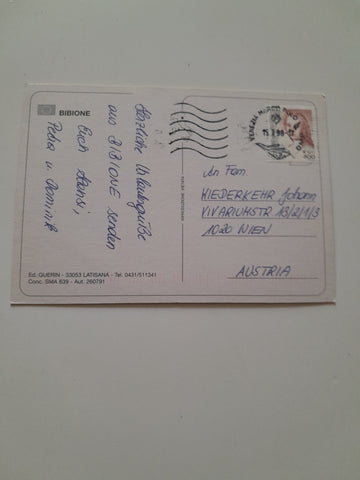 BIBIONE
Herzliche Urlaubsgrüße
aus BIBIONE senden
Euch Hansi,
Petra u. Dominik
Ed. GUERIN - 33053 LATISANA - Tel. 0431/511341
Conc. SMA 639 - Aut. 260791
An Fam.
WIEDERKEHR Johann
VIVARIUMSTR. 13/2/1/3
1020 WIEN
AUSTRIA